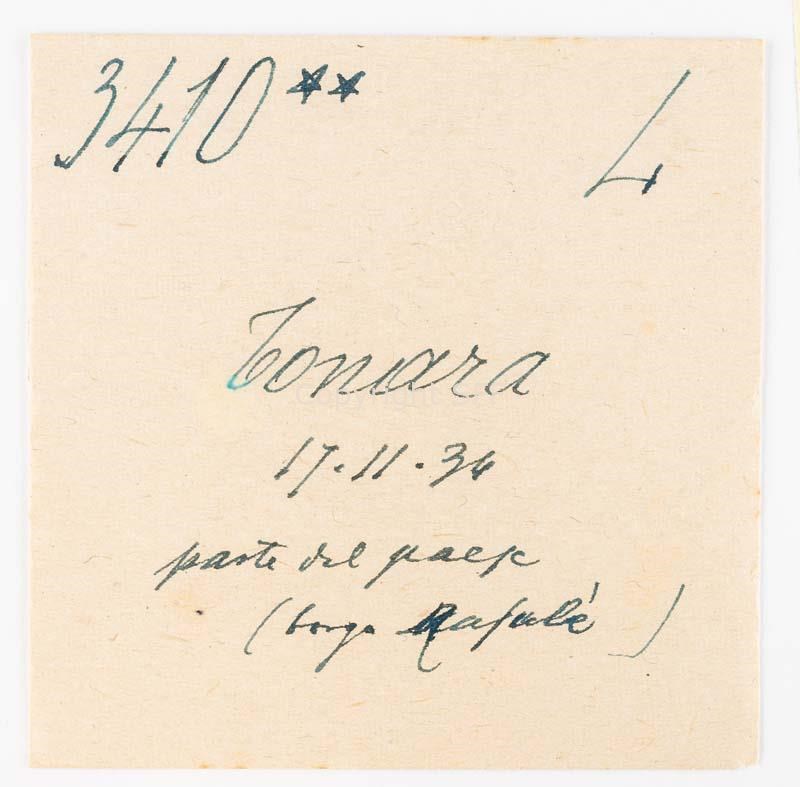 3410** L
Tonara
17.11.34
parte del paese
(borgo )